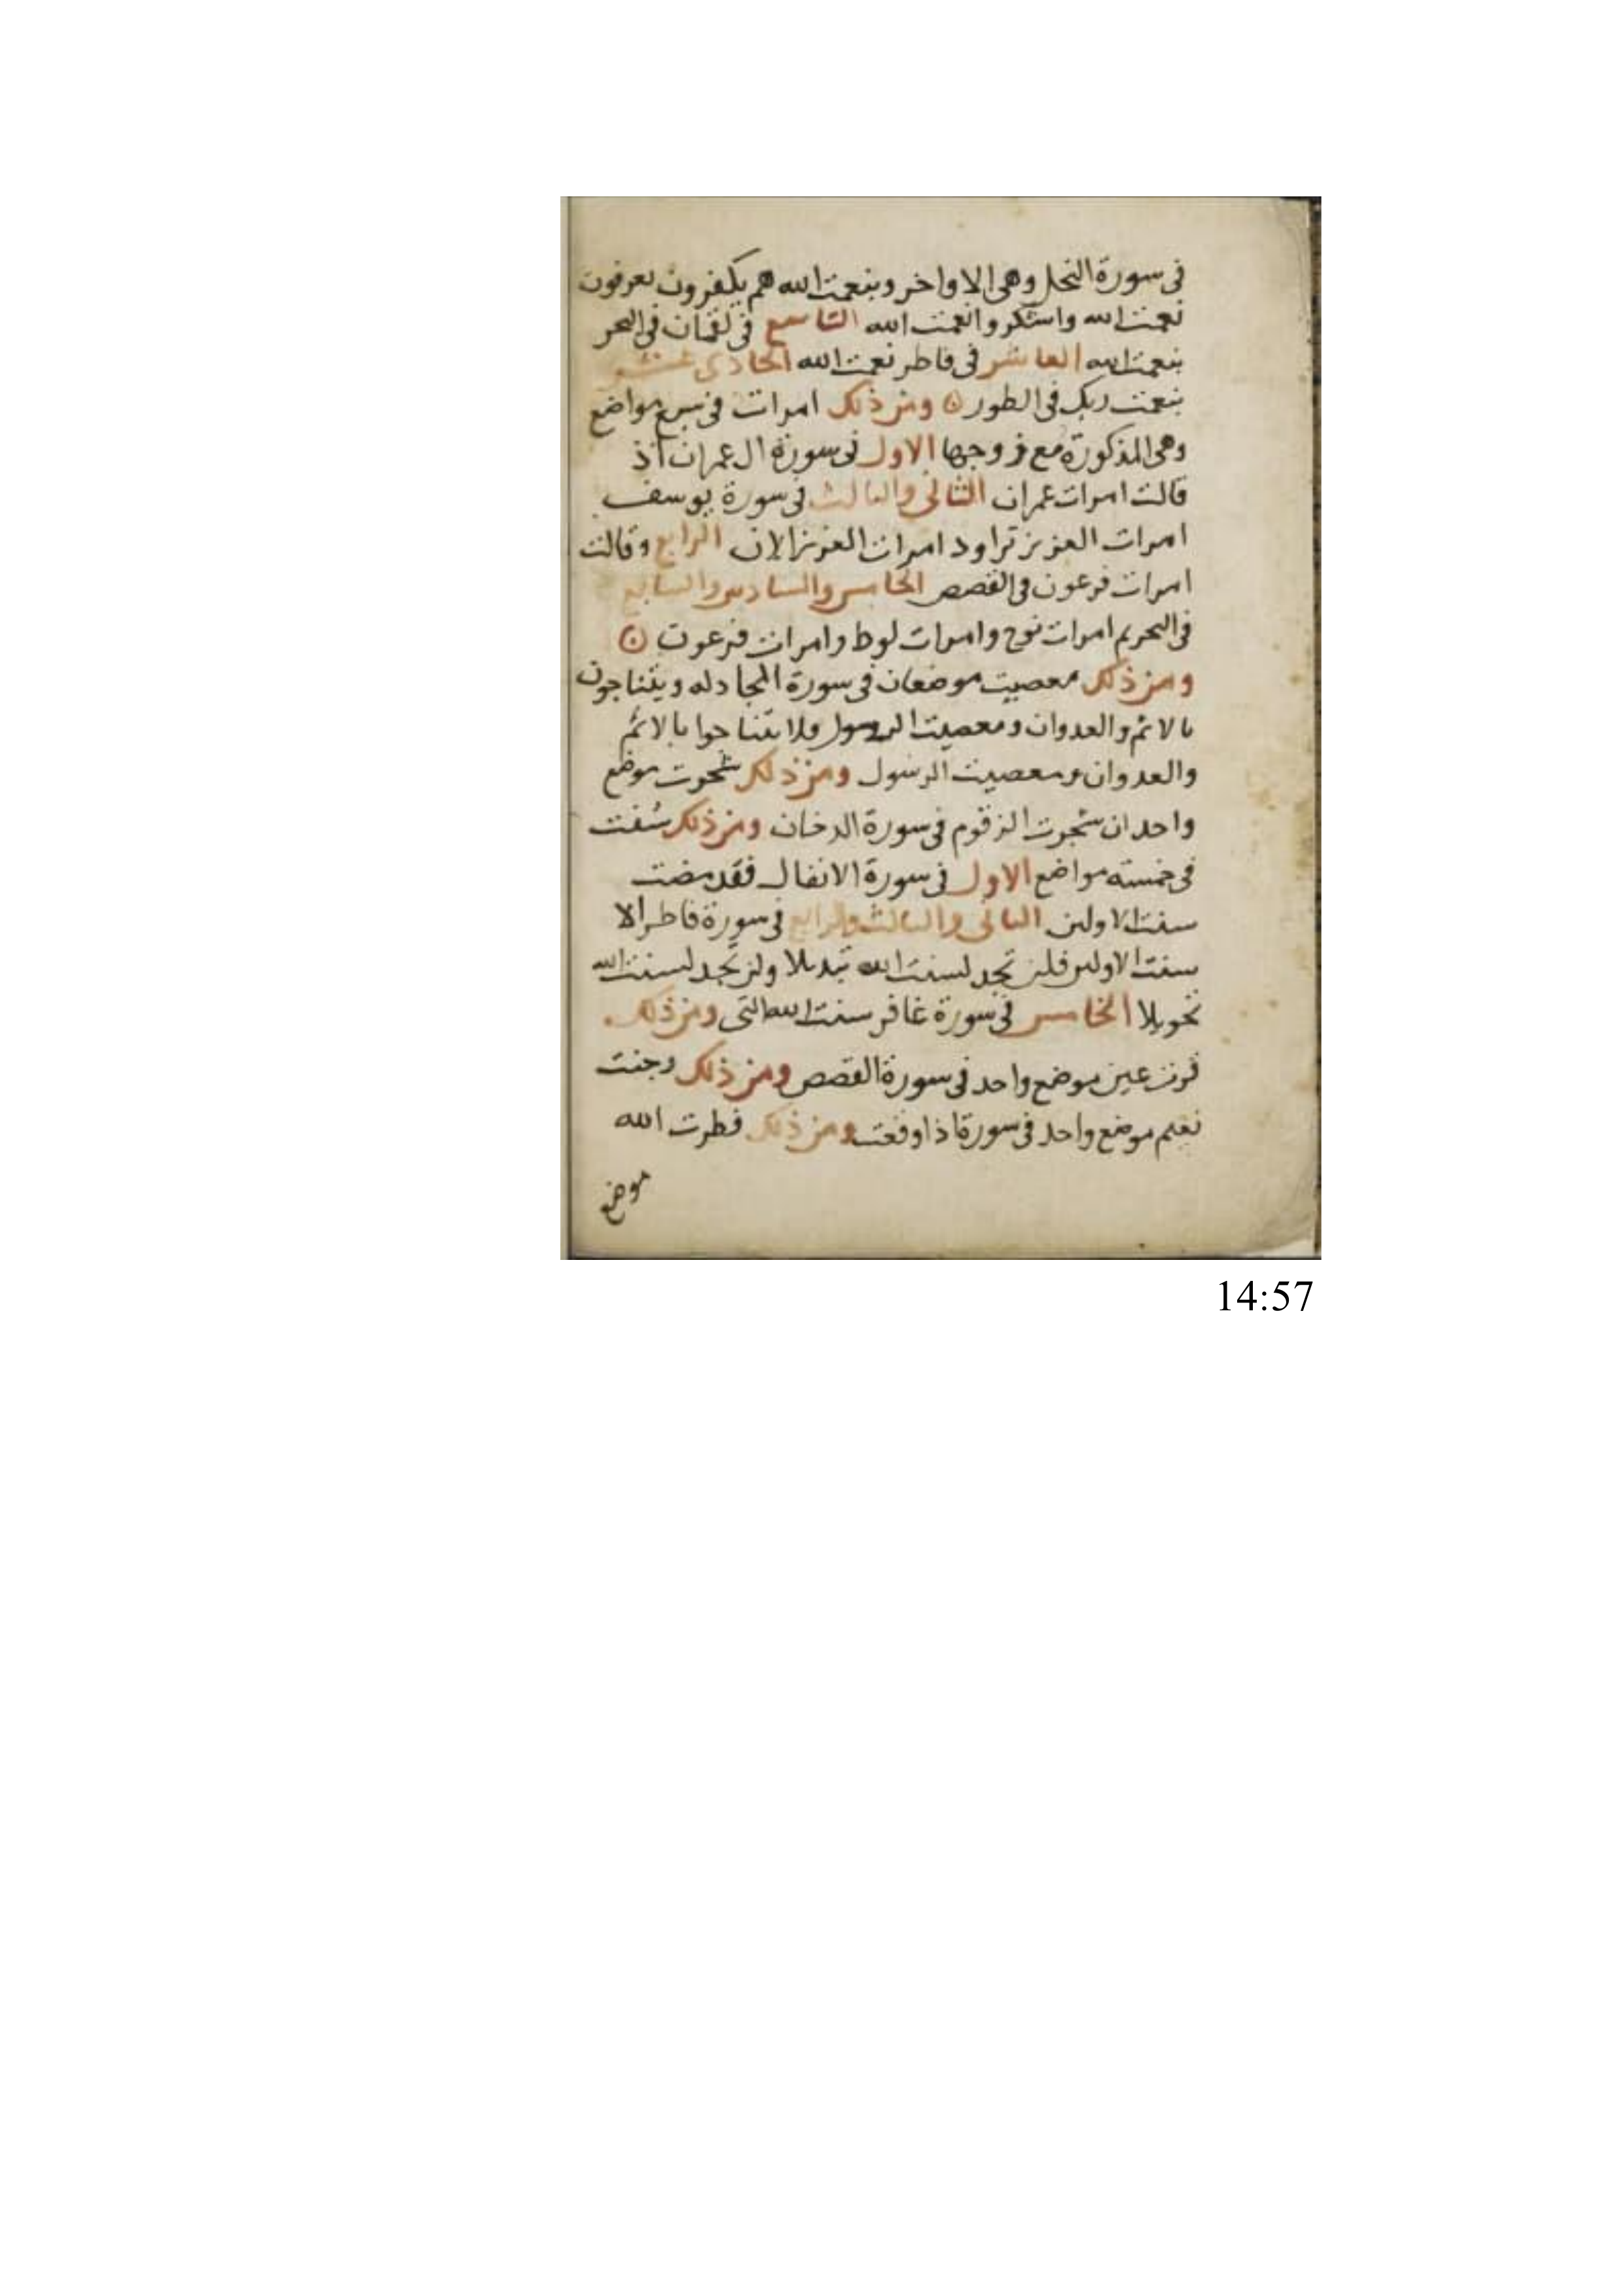 في سورة النحل وهي الاواخر وبنعمت الله هم يكفرون يعرفون
نعمت الله واشكروا نعمت الله التاسع في لقمان في البحر
بنعمت الله العاشر في فاطر نعمت الله الحادى عشر
بنعمت ربك في الطور ومن ذلك امرات في سبع مواضع
وهي المذكورة مع زوجها الاول في سورة ال عمران اذ
قالت امرات عمران الثاني والثالث في سورة يوسف
امرات العزيز تراود امرات العزيز الان الرابع وقالت
امرات فرعون في القصص الخامس والسادس والسابع
في التحريم امرات نوح وامرات لوط وامرات فرعون
ومن ذلك معصيت موضعان في سورة المجادله ويتناجون
بالاثم والعدوان ومعصيت الرسول فلا تتناجوا بالاثم
والعدوان ومعصيت الرسول ومن ذلك شجرت موضع
واحد ان شجرت الزقوم في سورة الدخان ومن ذلك سنت
في خمسته مواضع الاول في سورة الانفال فقد مضت
سنت الاولين الثاني والثالث والرابع في سورة فاطر الا
سنت الاولين فلن تجد لسنت الله تبديلا ولن تجد لسنت الله
تحويلا الخامس في سورة غافر سنت الله التي ومن ذلك
قرت عين موضع واحد في سورة القصص ومن ذلك وجنت
نعيم موضع واحد في سورة اذا وقعت ومن ذلك فطرت الله
موضع
14:57